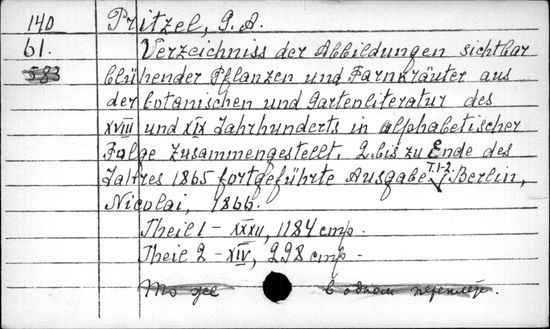 140 Pritzel, G. A.
61. Verzeichniss der Abbildungen sichtbar
583 blühender Pflanzen und Farnkräuter aus
der botanischen und Gartenliteratur des
XVIII und XIX Jahrhunderts in alphabetischer
Folge zusammengestellt. 2. bis zu Ende des
Jahres 1865 fortgeführte Ausgabe T. 1-2. Berlin,
Nicolai, 1866.
Theil 1 - XXXII, 1184 стр.
Theil 2 - XIV, 298 стр.
То же в одном переплёте.